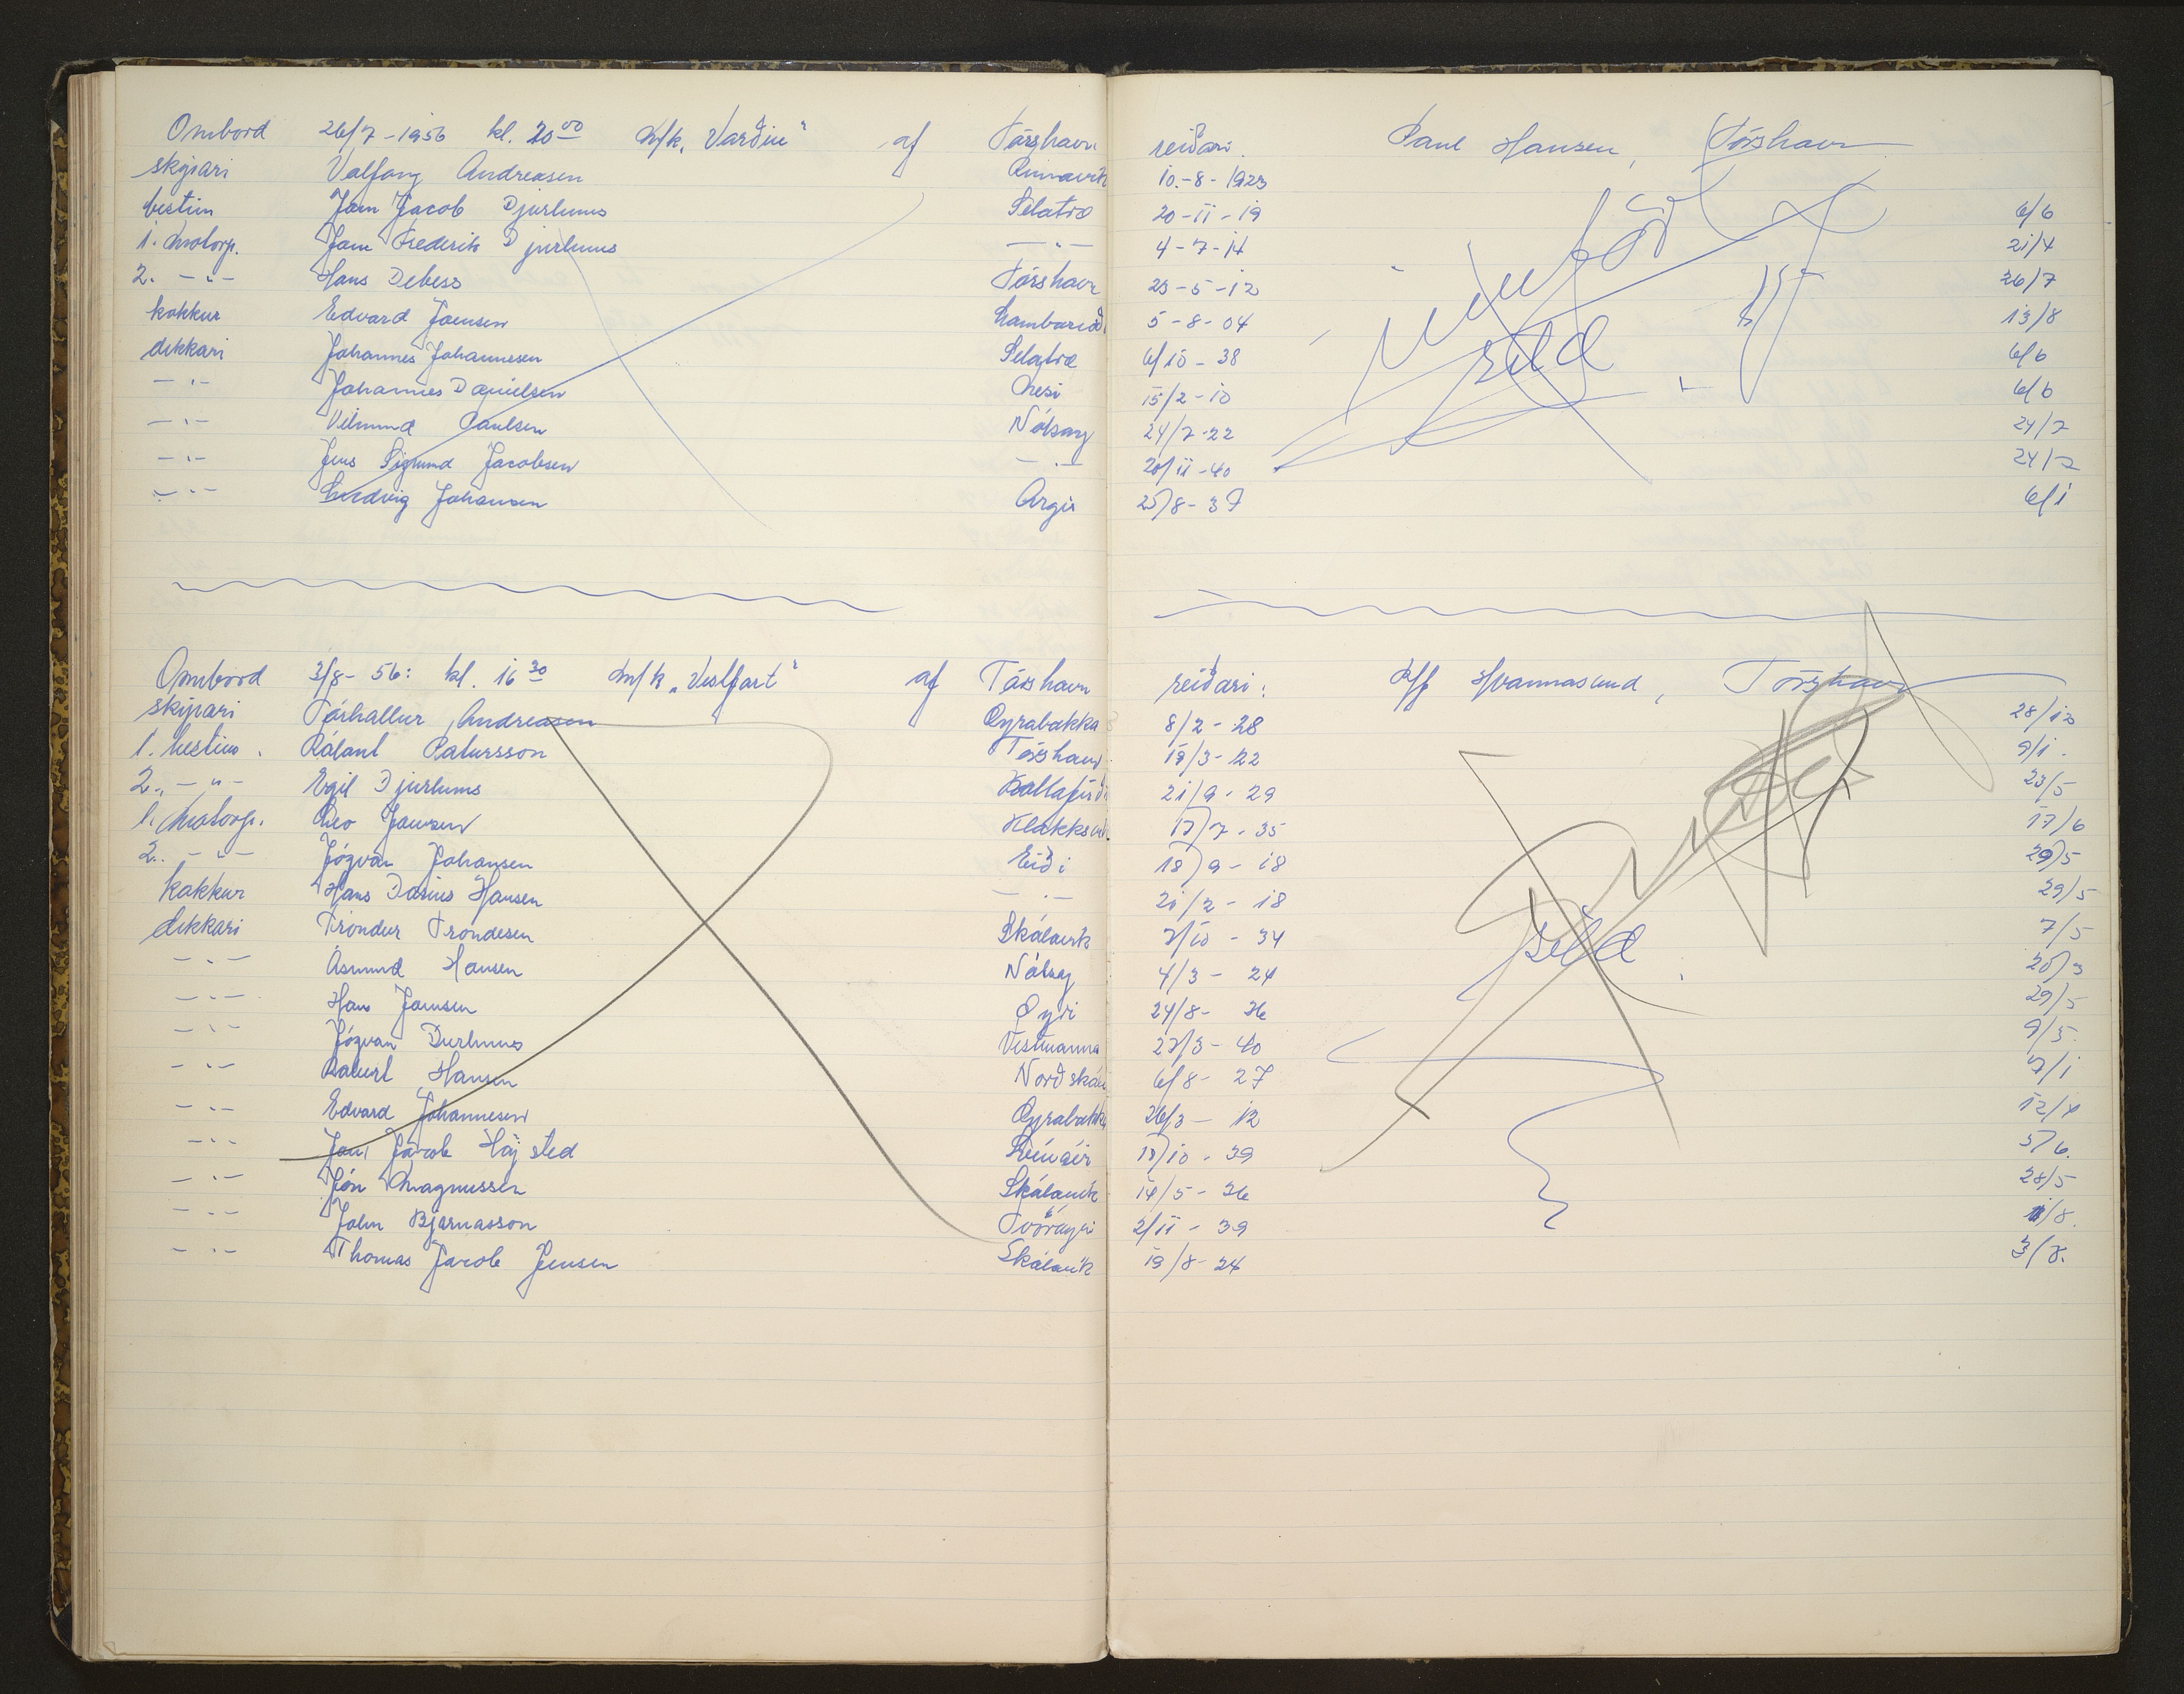 Ombord 26/7-1956 kl. 20 00 M/k. "Varðin" af Tórshavn reiðari. Paul Hansen, Tórshavn
skipari Valfang Andreasen Runavík 10.-8-1923
bestim Jam Jacob Djurhuus Selatræ 20-11-19 6/6
1. motorp. Jam Frederik Djurhuus —"— 4-7-14 21/4
2. —"— Hans Debess Tórshavn 23-5-12 26/7
kokkur Edvard Joensen Lambareiði 5-8-04 13/8
dekkari Johannes Johannesen Selatræ 6/10-38 6/6
—"— Johannes Danielsen Nesi 15/2-10 6/6
—"— Vilmund Paulsen Nólsoy 24/7-22 24/7
—"— Jens Sigmund Jacobsen —"— 20/11-40 24/7
—"— Ludvig Johansen Argir 25/8-37 6/1
síld
Ombord 3/8-56: kl. 16 30 M/k "Vestfart" af Tórshavn reiðari: P/f Hvannasund, Tórshavn
skipari Tórhallur Andreasen Oyrabakka 8/2-28 28/12
1. bestim. Rólant Patursson Tórshavn 19/3-22 9/1.
2. —"— Egil Djurhuus Kollafirði 21/9-29 23/5
1. motorp. Leo Joensen Klakksvík 17/7-35 17/6
2. —"— Jógvan Johansen Eiði 18/9-18 29/5
kokkur Hans Darius Hansen —"— 21/2-18 29/5
dekkari Tróndur Trondesen Skálavík 7/10-34 7/5
—"— Ásmund Hansen Nólsoy 4/3-24 20/3
—"— Hans Joensen Oyri 24/8-36 29/5
—"— Jógvan Durhuus Vestmanna 27/3-40 9/5.
—"— Hansen Norðskála 6/8-27 7/1
—"— Edvard Johannesen Oyrabakka 26/3-12 12/4
—"— Jacob Højsted 19/10-39 5/6.
—"— Jón Magnussen Skálavík 14/5-36 28/5
—"— John Bjarnasson Tvöroyri 2/11-39 1/8.
—"— Thomas Jacob Jensen Skálavík 19/8-24 3/8.
síld.